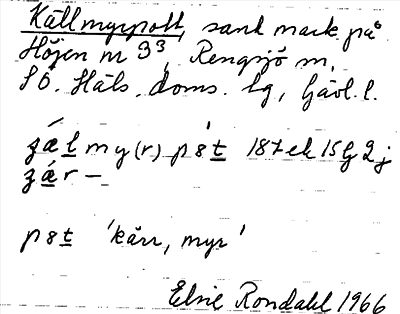 Källmyrpott, sank mark på
Höjen nr 3³, Rengsjö sn,
SÖ. Häls. doms. lg, Gävl. l.
zælmy(r)pꞵt 187ek15lj2j
zær –
pꞵt 'kärr, myr'
Elsie Rondahl 1966